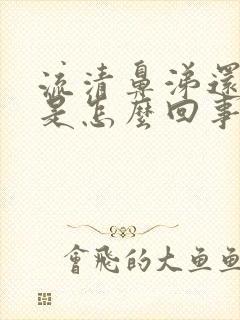 流清鼻涕還
是怎麼回事
會飛的大魚魚